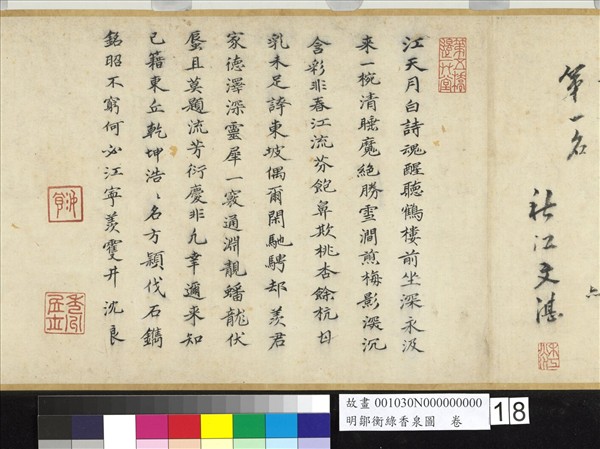 第一名
江文湛
江天月白詩魂醒聽鶴樓前坐深永汲
來一椀清睡魔絶勝雪澗煎梅影漾沉
含彩非春江流芬飽鼻欺桃杏餘杭甘
乳未足誇東坡偶爾閑馳騁却羨君
家德澤深靈犀一竅通淵靚蟠龍伏
蜃且莫題流芳衍慶非幸邇來知
已籍東丘乾坤浩〻名方穎伐石鐫
銘昭不窮何必江寧羨雙井 沈良
故畫 001030N000000000
明鄒衡綠香泉圖 卷
18